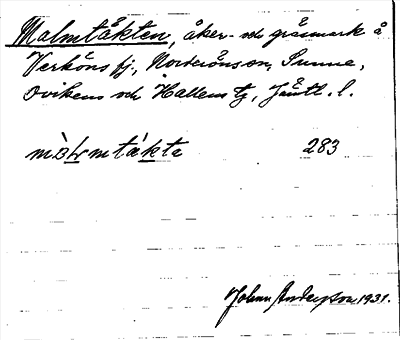 Malmtäkten, åker- och gräsmark å
Verköns fj, Norderönson, Sunne,
Ovikens och Hallens tg, Jämtl. l.
283
Johan Anderson 1931.